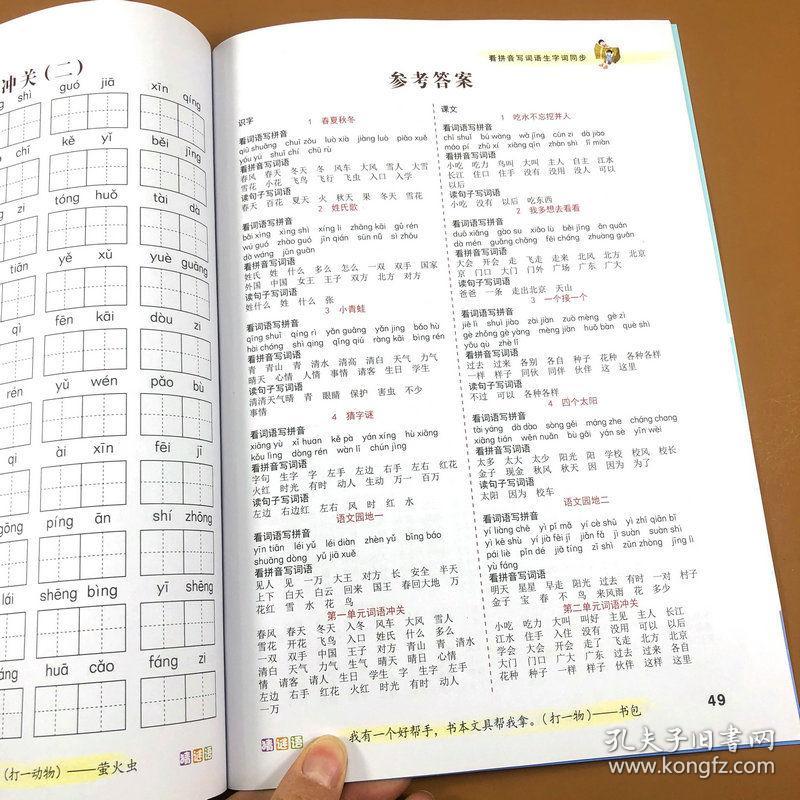 冲关（二）
shì guó jiā xīn qíng
chī kě yǐ běi jīng
tóng huǒ tài dà
tiān yě xǔ yuè guāng
qì fēn kāi dòu zi
rén yǔ wén pǎo bù
qi ài xīn fēi jī
gōng píng ān shí zhōng
lái shēng bìng yī shēng
áng huā cǎo fáng zi
（打一动物）——萤火虫
猜谜语
看拼音写词语生字词同步
参考答案
识字
1 春夏秋冬
看词语写拼音
qiū shuāng chuī zǒu luò xià jiàng luò piāo xuě
yóu yú shuǐ chí chū rù
看拼音写词语
春风 春天 冬天 冬 风车 大风 雪人 大雪
雪花 小花 飞鸟 飞行 飞虫 入口 入学
读句子写词语
春天 百花 夏天 火 秋天 果 冬天 雪花
2 姓氏歌
看词语写拼音
bǎi xìng xìng shì xíng lǐ zhāng kāi gǔ rén
wú guó zhào guó jīn qián sūn nǚ sì zhōu
dà wáng jūn guān
看拼音写词语
姓氏 姓 什么 多么 怎么 一双 双手 国家
外国 中国 女王 王子 双方 北方 对方
读句子写词语
姓什么 姓 什么 张
3 小青蛙
看词语写拼音
qīng shuǐ qíng rì yǎn guāng yǎn jing bǎo hù
hài chóng shì qing qǐng qiú ràng kāi shēng bìng
看拼音写词语
青 青山 青 清水 清高 清白 天气 力气
晴天 心情 人情 事情 请客 生日 学生
读句子写词语
清清天气晴 青 眼睛 保护 害虫 不少
事情
4 猜字谜
看词语写拼音
xiāng yù xǐ huan kě pà yán xíng hù xiāng
kǒu lìng dòng rén wàn lǐ chún jìng
看拼音写词语
字句 生字 字 左手 左边 右手 左右 红花
火红 时光 有时 动人 生动 万一 百万
读句子写词语
左边 右边红 左右 风 时 红 水
语文园地一
看词语写拼音
yīn tiān léi yǔ léi diàn zhèn yǔ bīng báo
shuāng dòng yǔ jiā xuě
看拼音写词语
见人 见 一万 大王 对方 长 安全 半天
上下 白天 白云 回来 国王 春回大地 万
花红 雪 水 花 鸟
第一单元词语冲关
春风 春天 冬天 入冬 风车 大风 雪人
雪花 开花 飞鸟 入口 姓氏 什么 多么
一双 双手 中国 王子 对方 青山 青 清水
清白 天气 力气 生气 晴天 晴日 心情
情 请客 请人 生日 学生 字 生字 左手
左边 右手 红花 火红 时光 有时 动人
一万
课文
1 吃水不忘挖井人
看词语写拼音
chī shuǐ bú wàng wā jǐng cūn zi dà jiào
máo pí zhǔ xí xiāng qīn zhàn shì lǐ miàn
看拼音写词语
小吃 吃力 鸟叫 大叫 主人 自主 江水
长江 住口 住手 没有 没用 没人 可以
以后
读句子写词语
小吃 没有 以后 吃东西
2 我多想去看看
看词语写拼音
duō xiǎng gào su xiǎo lù běi jīng ān quán
dà mén guǎng chǎng fēi cháng zhuàng guān
看拼音写词语
大会 开会 走 飞走 走来 北风 北方 北京
京 门口 大门 门外 广场 广东 广大
读句子写词语
爸爸 一条 走出北京 天山
3 一个接一个
看词语写拼音
jiē lì shuì jiào zài jiàn zuò mèng gè zì
gāng cái yàng yàng mèng jiàn huǒ bàn què shì
yòu qù zhè lǐ
看拼音写词语
过去 过来 各别 各自 种子 花种 各种各样
一样 样子 同伙 同伴 伙伴 这 这里
读句子写词语
不过 可以 各种各样
4 四个太阳
看词语写拼音
tài yáng dà dào sòng gěi máng zhe cháng chang
xiāng tián wēn nuǎn bù gǎi yán sè yīn wèi
看拼音写词语
太多 太大 太少 阳光 阳 学校 校风 校长
金子 现金 秋风 秋天 因 因为 为了
读句子写词语
太阳 因为 校车
语文园地二
看词语写拼音
yī liàng chē yì pǐ mǎ yí cè shū yì zhī qiān bǐ
yì kē shù yí jià fēi jī jiǎn fǎ jì suàn suàn shì
pái liè pǐn dé jiǎ tǐng zǐ shì zūn zhòng jǐng lǐ
yù fáng
看拼音写词语
明天 星星 早走 阳光 过去 有时 一对 村子
金子 宝 春 不 鸟 来风雨 花 多少
第二单元词语冲关
小吃 吃力 大叫 叫好 主见 主人 长江
江水 住手 入住 没有 没用 可以 以后
学会 大会 开会 走了 飞走 北方 北京
大门 门口 广大 广东 过去 过来 各自
花种 种子 一样 样子 伙伴 这样 这里
49
猜谜语
我有一个好帮手，书本文具帮我拿。（打一物）——书包
孔夫子旧书网
www.kongfz.com